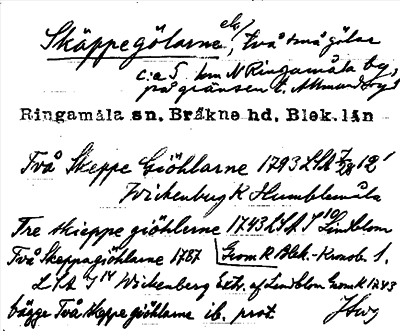 Skäppegölarne, två små gölar
c:a 5 km N Ringamåla by,
på gränsen t. Almundsryd
Ringamåla sn. Bräkne hd. Blek. län
Två Skeppe Giöhlarne 1793 LSA 7/28 12'
Wickenburg K Humblemåla
Tre skieppe giöhlerne 1743 LSA J10 Lindblom
Två Skeppagiöhlarne 1787 Grom K Blek.-Kronob. l.
LSA J14 Wickenberg Extr. af Lindblom Grom K 1743
bägge Två skeppe giöhlarne ib. prot.